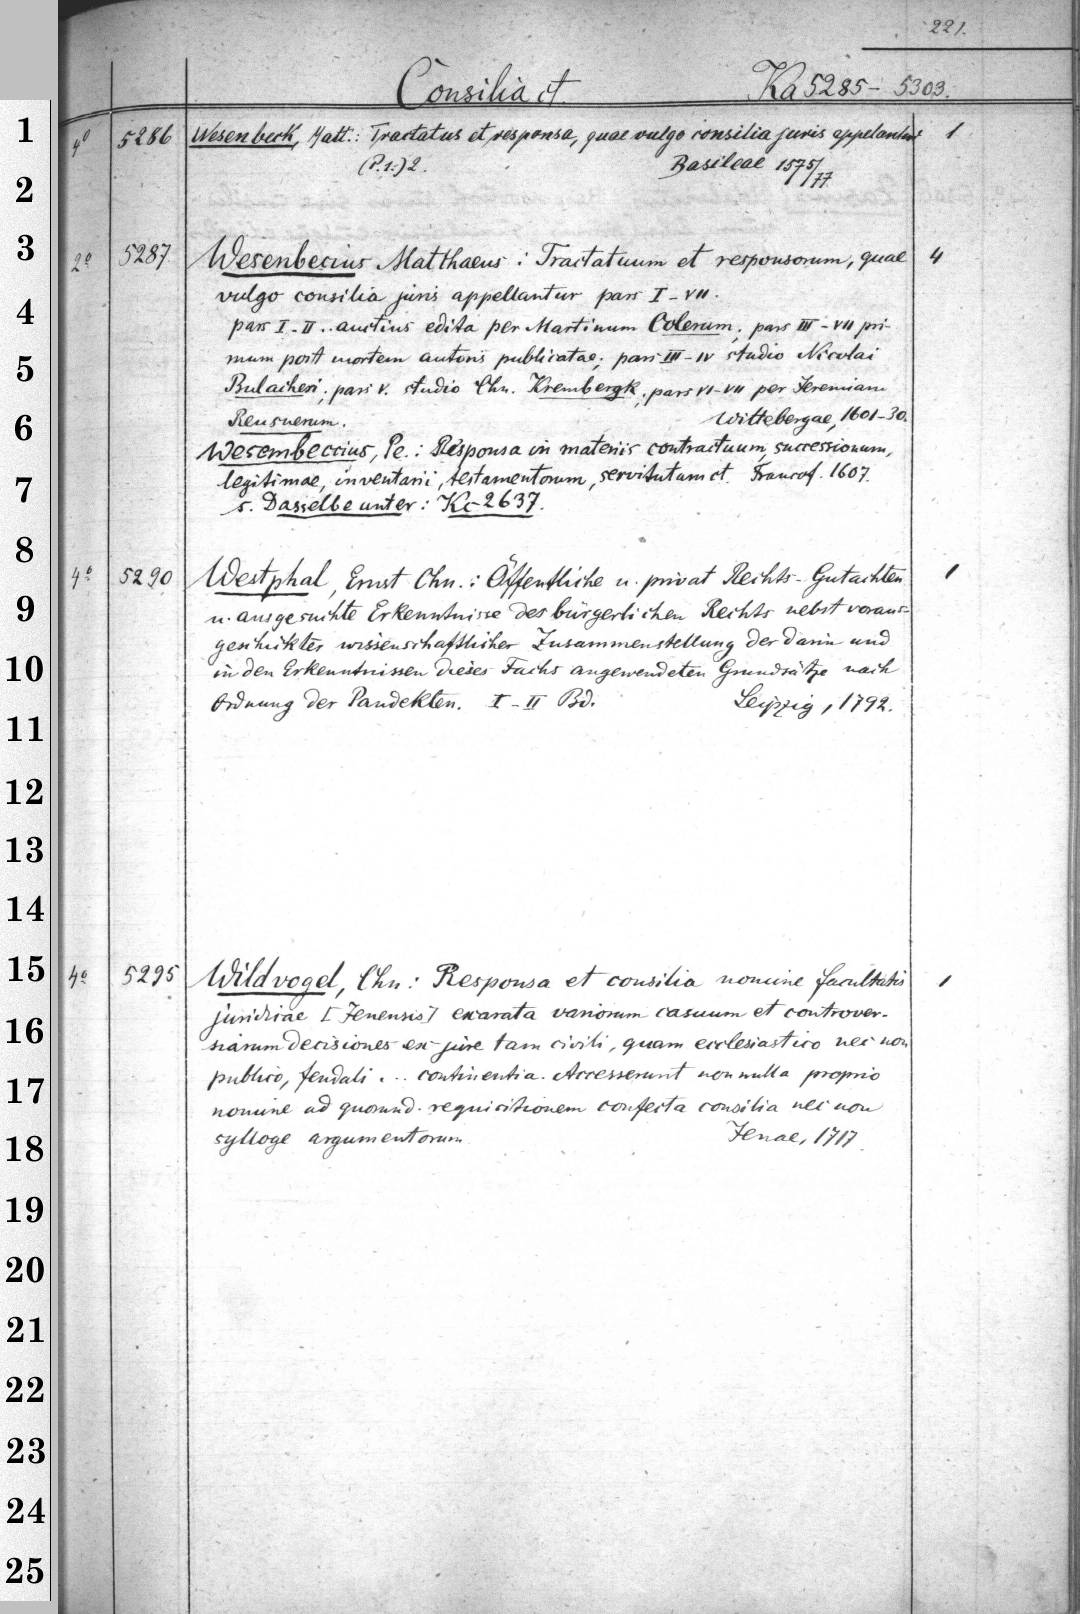 221.
Consilia ct. Ka 5285 - 5303.
1
2
3
4
5
6
7
8
9
10
11
12
13
14
15
16
17
18
19
20
21
22
23
24
25
4° 5286 Wesenbeck, Matt.: Tractatus et responsa, quae vulgo consilia juris appelantur 1
(P. 1.) 2. Basileae 1575/77
2° 5287. Wesenbecius Matthaeus: Tractatuum et responsorum, quae 4
vulgo consilia juris appellantur pars I - VII.
pars I - II .. auctius edita per Martinum Colerum, pars III - VII pri-
mum post mortem autoris publicatae; pars III - IV studio Nicolai
Bulacheri; pars V. studio Chn. Krembergk; pars VI - VII per Jeremiam
Reusnerum. Wittebergae, 1601 - 30.
Wesembeccius, Pe.: Responsa in materiis contractuum, successionum,
legitimae, inventarii, testamentorum, servitutum ct. Francof. 1607.
s. Dasselbe unter: Kc 2637.
4° 5290. Westphal, Ernst Chn.: Öffentliche u. privat Rechts - Gutachten 1
u. ausgesuchte Erkenntnisse des bürgerlichen Rechts nebst voraus-
geschickter wissenschaftlicher Zusammenstellung der darin und
in den Erkenntnissen dieses Fachs angewendeten Grundsätze nach
Ordnung der Pandekten. I - II Bd. Leipzig, 1792.
4° 5295 Wildvogel, Chn: Responsa et consilia nomine facultatis 1
juridicae [Jenensis] exarata variorum casuum et controver-
siarum decisiones ex jure tam civili, quam ecclesiastico nec non
publico, feudali ... continentia. Accesserunt nonnulla proprio
nomine ad quorund. requisitionem confecta consilia nec non
sylloge argumentorum Jenae, 1717.